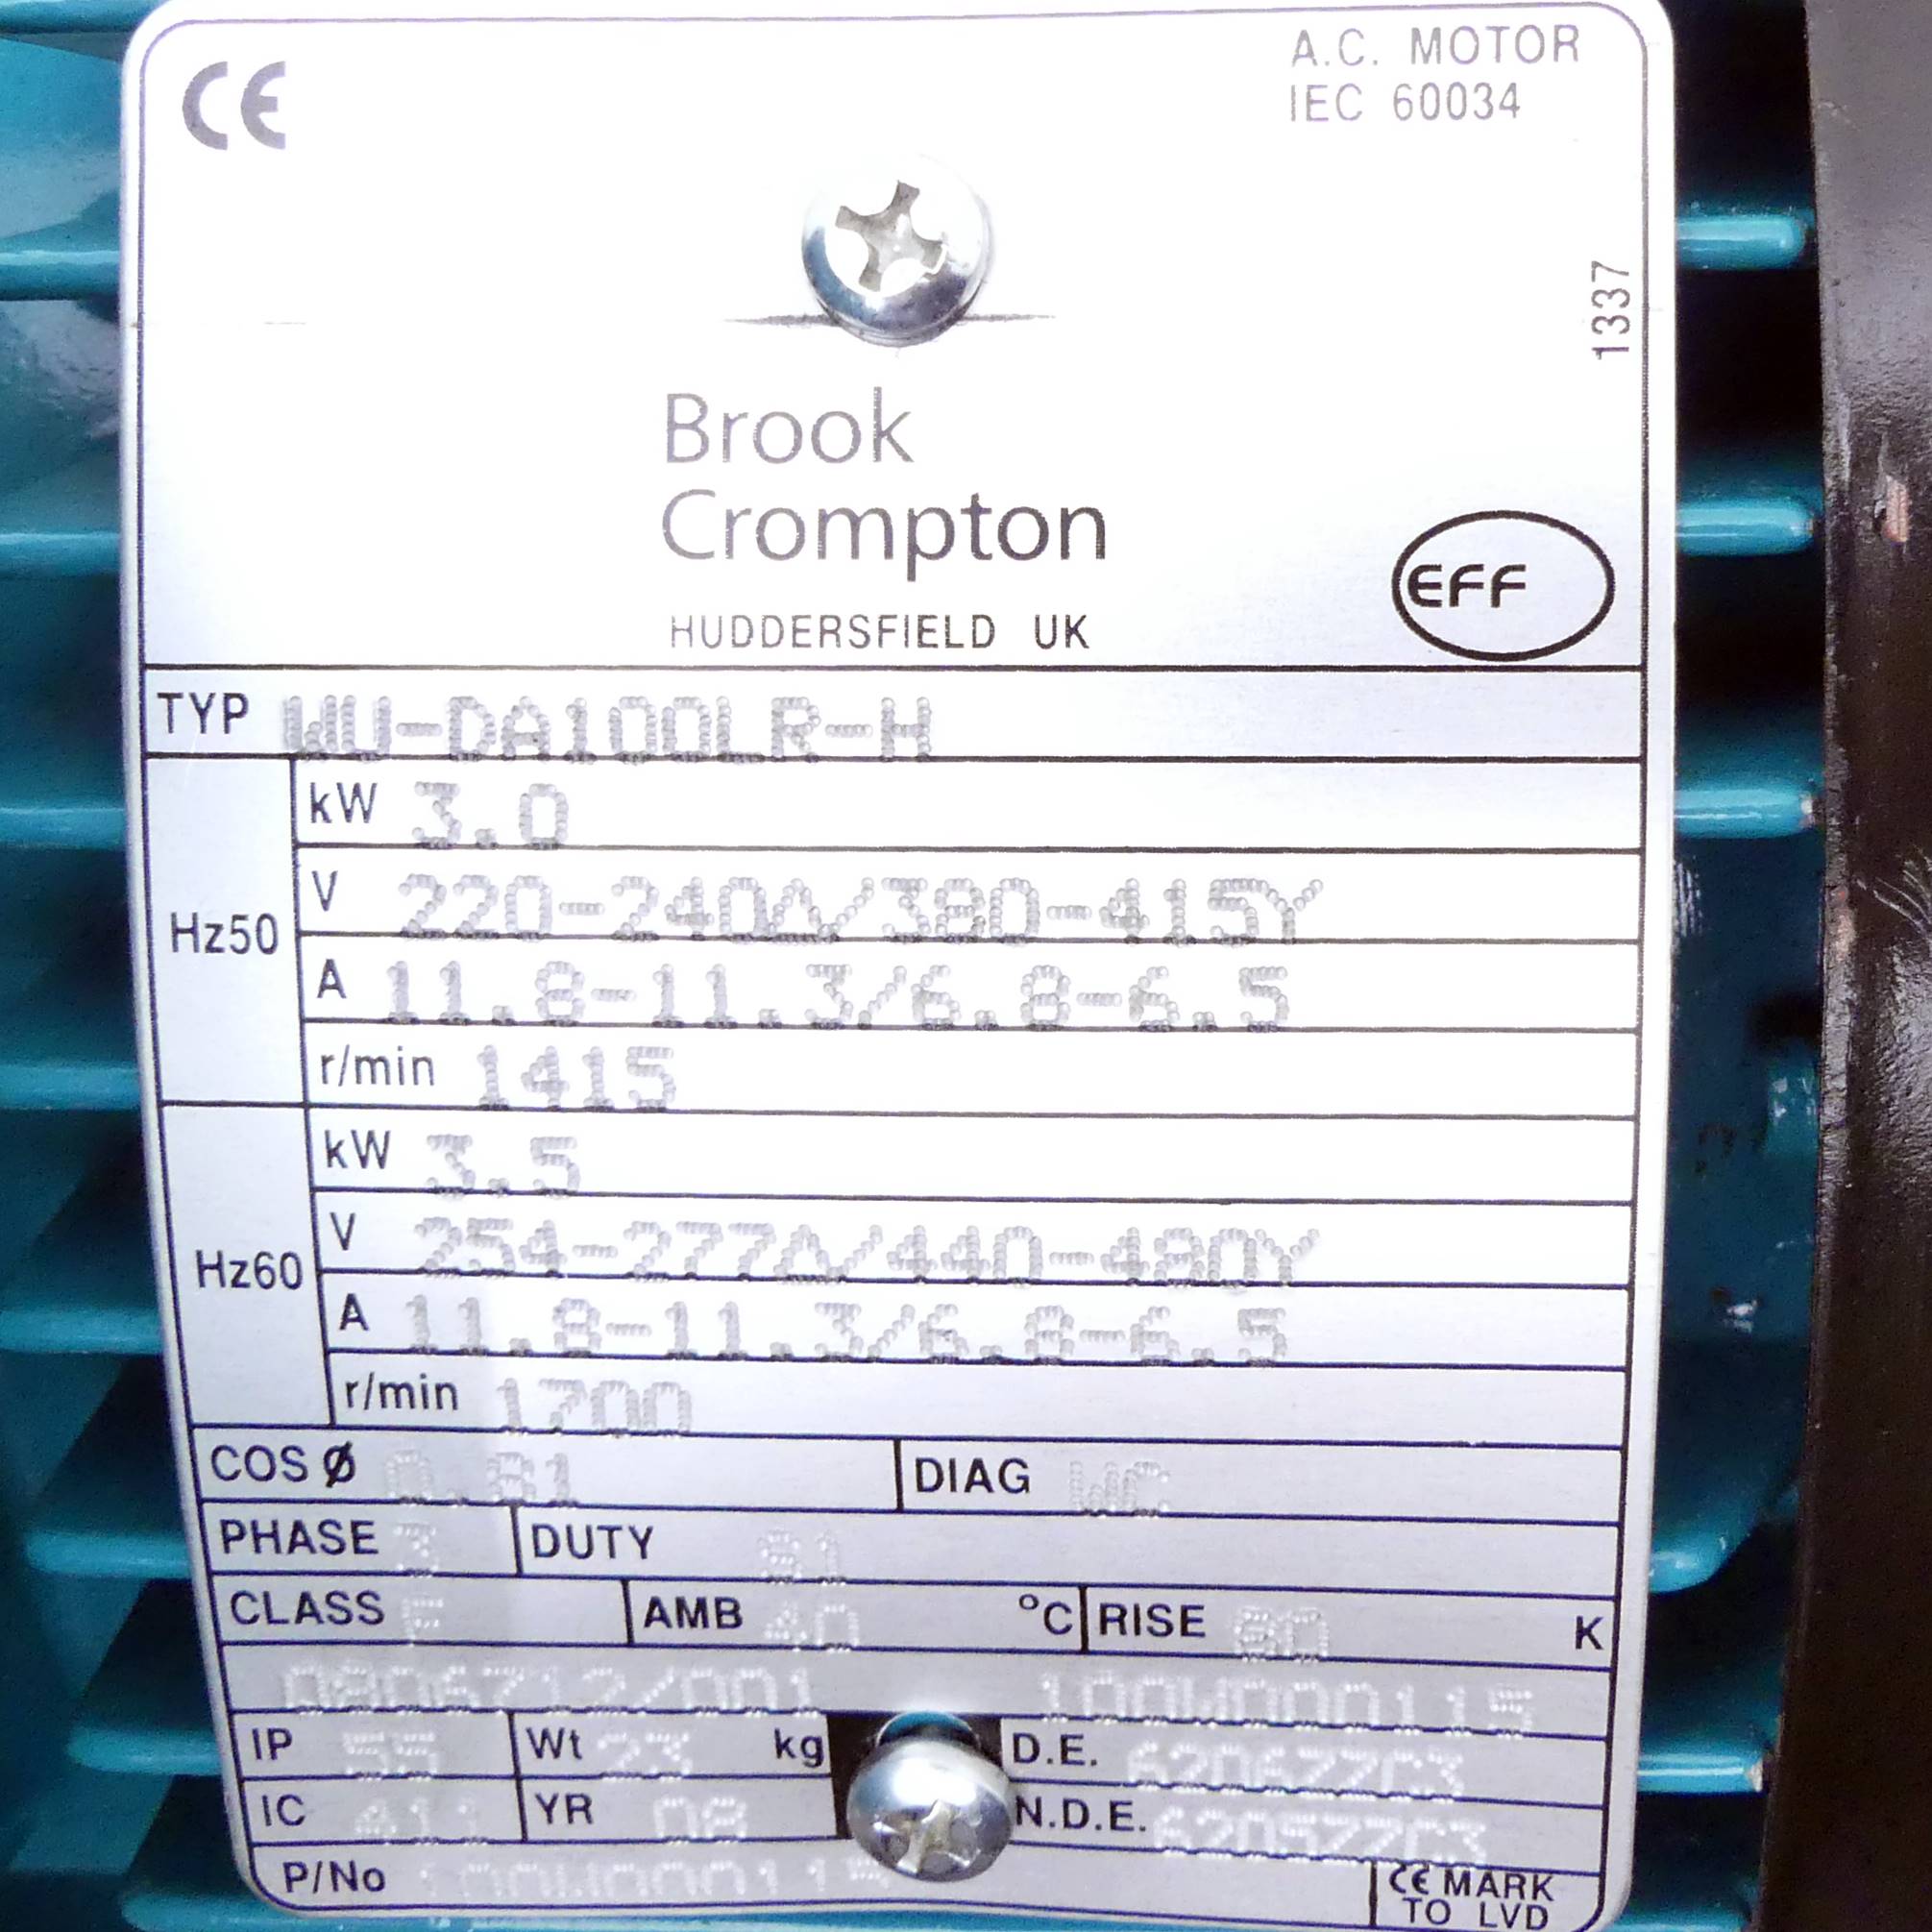 CE
A.C. MOTOR
IEC 60034
1337
Brook
Crompton
HUDDERSFIELD UK
EFF
TYP WU-DA100LR-H
Hz50
kW 3.0
V 220-240Δ/380-415Y
A 11.8-11.3/6.8-6.5
r/min 1415
Hz60
kW 3.5
V 254-277Δ/440-480Y
A 11.8-11.3/6.8-6.5
r/min 1700
COS Ø 0.81 DIAG WC
PHASE 3 DUTY S1
CLASS F AMB 40 °C RISE 80 K
0806712/001 100W000115
IP 55 Wt 23 kg D.E. 6206ZZC3
IC 411 YR 08 N.D.E. 6205ZZC3
P/No 100W000115
CE MARK
TO LVD